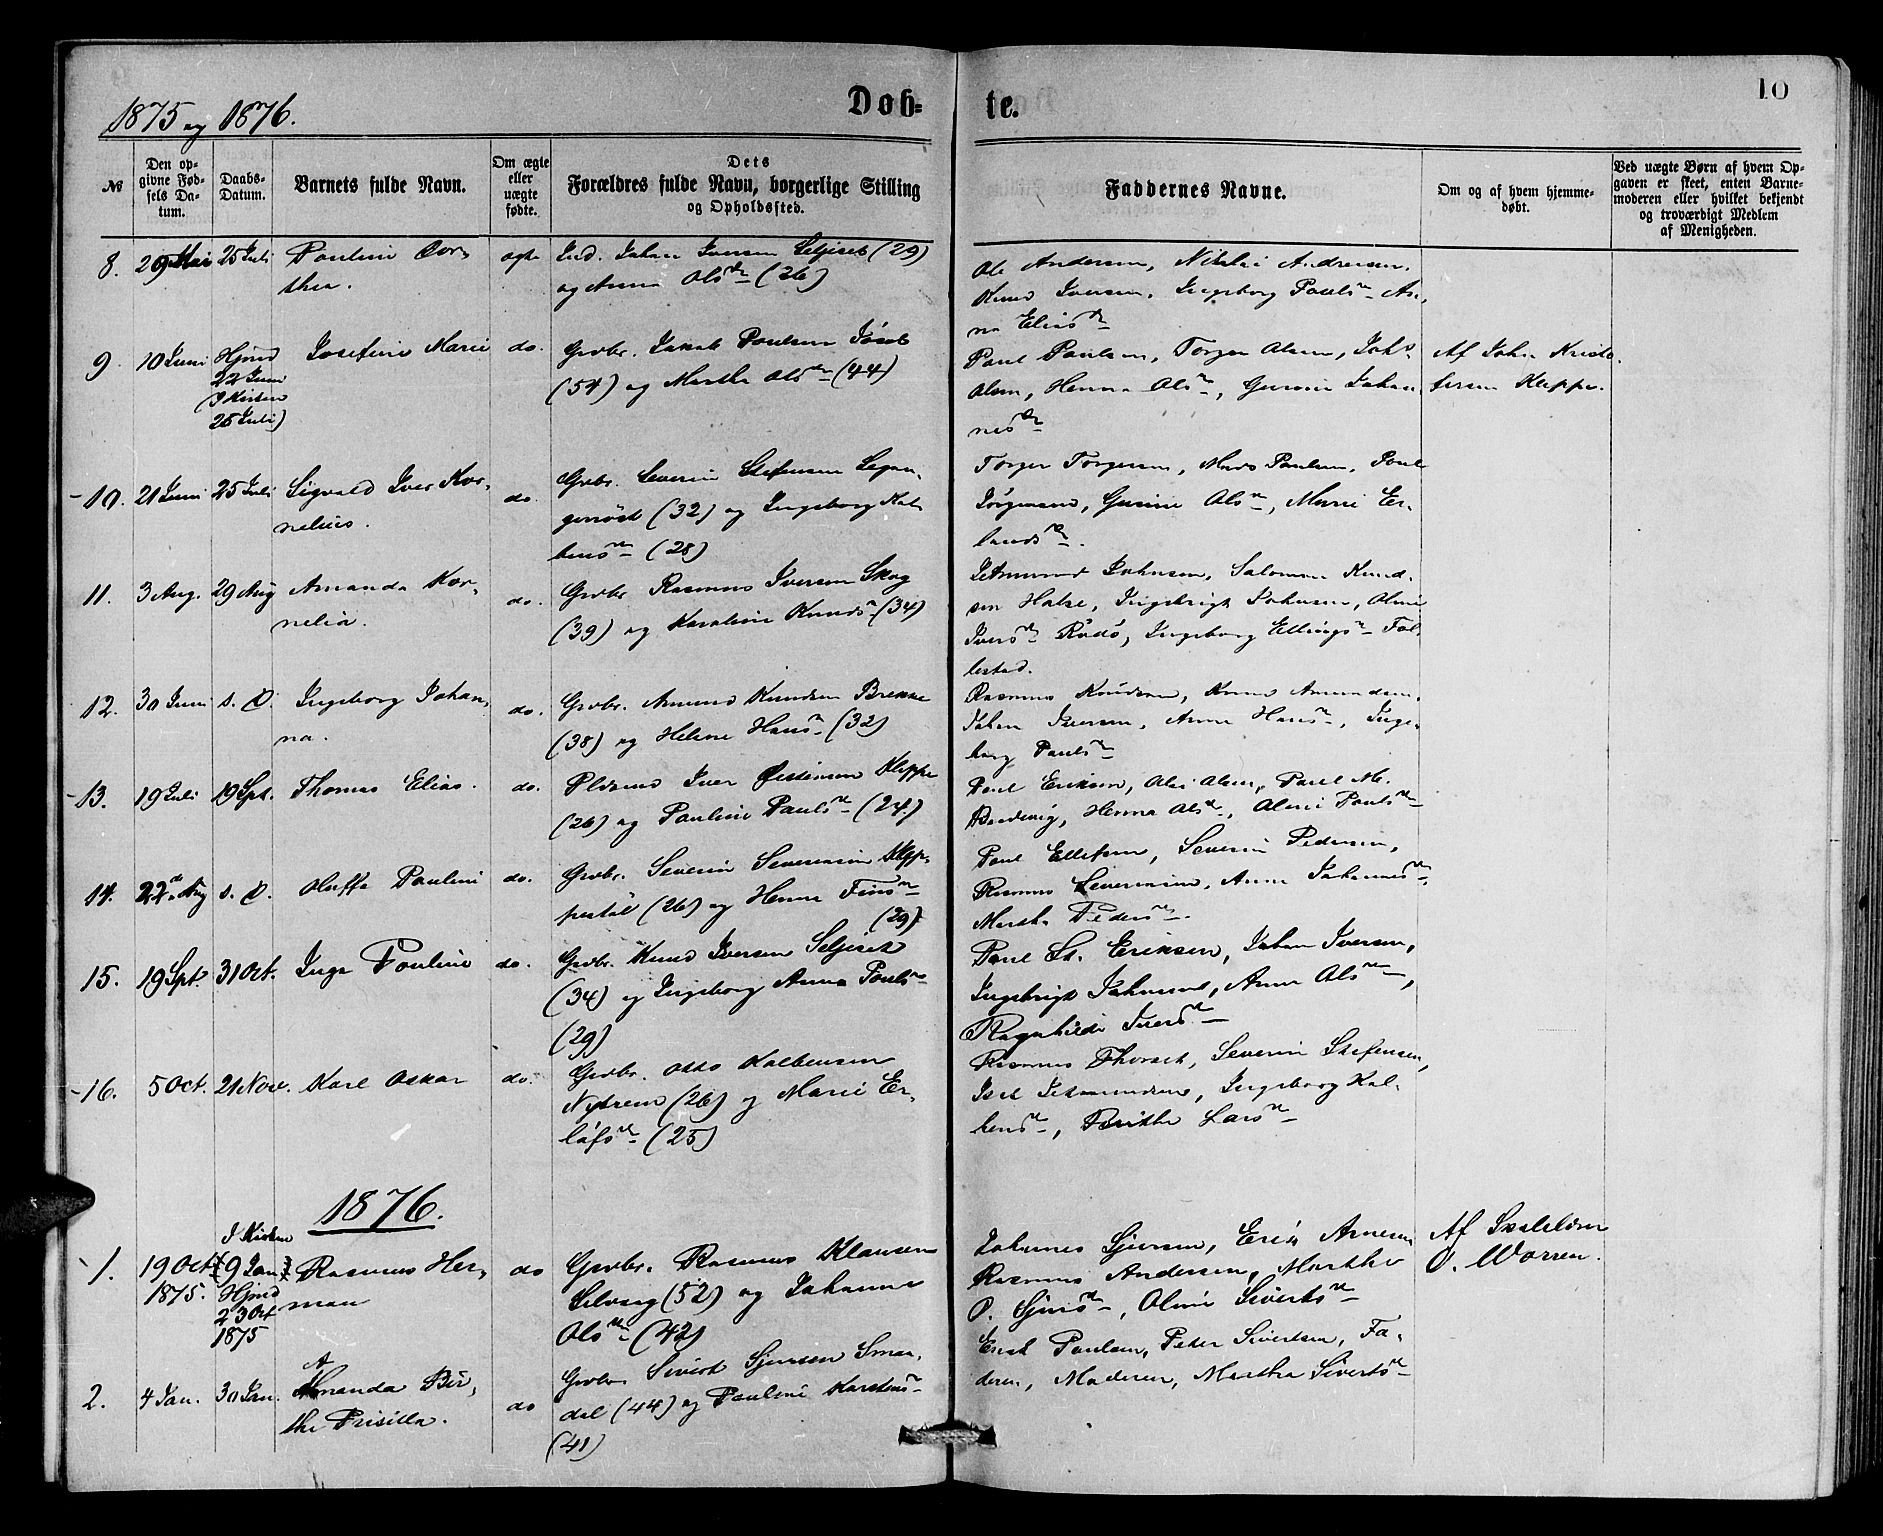 1875 og 1876.
Døb-
te.
10
№
Den op-
givne Fød-
sels Da-
tum.
Daabs-
Datum.
Barnets fulde Navn.
Om ægte
eller
uægte
fødte.
Dets
Forældres fulde Navn, borgerlige Stilling
og Opholdssted.
Faddernes Navne.
Om og af hvem hjemme-
døbt.
Ved uægte Børn af hvem Op-
gaven er skeet, enten Barne-
moderen eller hvilket bekjendt
og troværdigt Medlem
af Menigheden.
8. 29 Mai 25 Juli Pauline Dor-
thea.
ægte Ind. Johan Iversen Seljeset (29)
og Anna Olsdr (26)
Ole Andersen, Nikolai Andreasen,
Knud Iversen, Ingeborg Paulsdr, An-
na Eliasdr
9. 10 Juni Hjmd
22 Juni
(I Kirken
25 Juli)
Josefine Marie do. Grdbr. Jakob Paulsen
(54) og Martha Olsdr (44)
Paul Paulsen, Torger Olsen, Johs
Olsen, Henna Olsdr, Gurine Johan-
nesdr
Af Johs Kristo-
fersen Kleppe.
10. 21 Juni 25 Juli Sigvald Iver Kor-
nelius.
do. Grdbr. Severin Stefensen Legan-
gerød (32) og Ingeborg Kol-
bensdr (28)
Torger Torgersen, Mads Paulsen, Paul
Jørgensen, Gurine Olsdr, Marie Er-
landsdr.
11. 3 Aug. 29 Aug Amanda Kor-
nelia.
do. Grdbr. Rasmus Iversen Skog
(39) og Karoline Knudsdr (34)
Johnsen, Salomon Knud-
sen Halse, Ingebrigt Johnsen, Oline
Iversdr Rødø, Ingeborg Ellingsdr Fal-
lestad.
12. 30 Juni s. D. Ingeborg Johan-
na.
do. Grdbr. Amund Knudsen Brekke
(38) og Helene Hansdr (32)
Rasmus Knudsen, Knud Amundsen,
Johan Iversen, Anne Hansdr, Inge-
borg Paulsdr
13. 19 Juli 19 Spt. Thomas Elias. do. Iver Østensen Kleppe
(26) og Pauline Paulsdr (24.)
Paul Eriksen, Ole Olsen, Paul M.
Henna Olsdr, Oline Paulsdr
14. 22de Aug s. D. Oluffa Pauline do. Grdbr. Severin Severinsen Klep-
(26) og Henna Finsdr
(29)
Paul Ellefsen, Severin Pedersen,
Rasmus Severinsen, Anne Johannesdr,
Martha Pedersdr.
15. 19 Spt. 31 Oct. Inga Pauline do. Grdbr. Knud Iversen Seljeset
(34) og Ingeborg Anna Paulsdr
(29)
Paul St. Eriksen, Johan Iversen,
Ingebrigt Johnsen, Anne Olsdr,
Ragnhilde Iversdr
16. 5 Oct. 21 Nov. Karl Oskar do. Grdbr. Otto Kolbensen
Nytrem (26) og Marie Er-
lofsdr (25)
Rasmus Thorset, Severin Stefensen,
Ingeborg Kol-
bensdr, Brithe Larsdr
1876.
1. 19 Oct
1875.
I Kirken
9 Jan
Hjmd
23 Oct
1875
Rasmus Her-
man
do Grdbr. Rasmus Klausen
Selvaag (52) og Johanna
Olsdr (42)
Johannes Sjursen, Erik Arnesen
Rasmus Andersen, Martha
O. Sjursdr, Oline Sivertsdr
Af Skolelærer
O. Warren.
2. 4 Jan. 30 Jan. Amanda Bir-
the Prisilla.
do Grdbr. Sivert Sjursen Smaa-
dal (44) og Pauline Karstensdr
(41)
Erik Paulsen, Peter Sivertsen, Fa-
deren, Moderen, Martha Sivertsdr